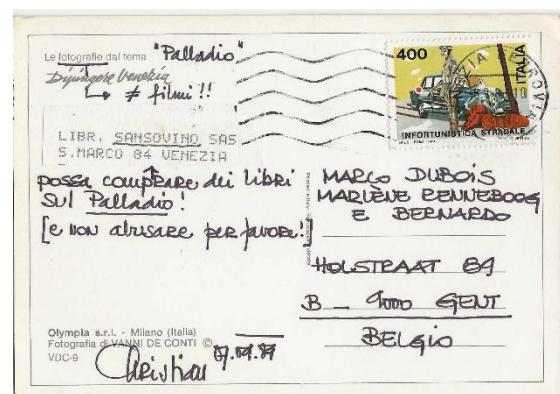 Le fotografie dal tema "Palladio"
Dipingere Venezia
↳ ≠ filmi!!
LIBR. SANSOVINO SAS
S.MARCO 84 VENEZIA
possa comprare dei libri
sul Palladio!
[e non abusare per favore!]
Olympia s.r.l. - Milano (Italia)
Fotografia di VANNI DE CONTI ©
VDC-9
Christian 07.09.89
400
ITALIA
INFORTUNISTICA STRADALE
MARCO DUBOIS
MARLÈNE RENNEBOOG
E BERNARDO
HOLSTRAAT 89
B - 9000 GENT
BELGIO